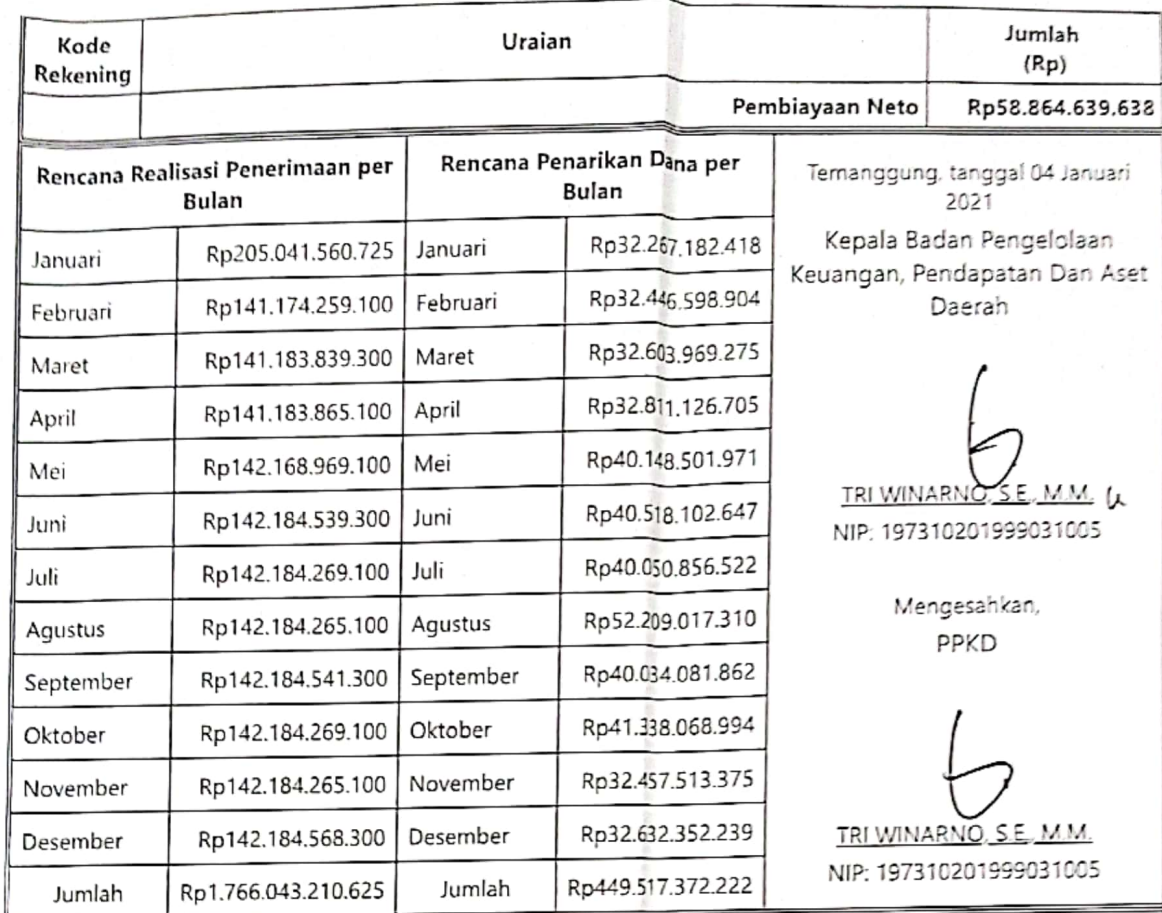 Kode Rekening Uraian Jumlah (Rp)
Pembiayaan Neto Rp58.864.639.638
Rencana Realisasi Penerimaan per Bulan Rencana Penarikan Dana per Bulan
Januari Rp205.041.560.725 Januari Rp32.267.182.418
Februari Rp141.174.259.100 Februari Rp32.446.598.904
Maret Rp141.183.839.300 Maret Rp32.603.969.275
April Rp141.183.865.100 April Rp32.811.126.705
Mei Rp142.168.969.100 Mei Rp40.148.501.971
Juni Rp142.184.539.300 Juni Rp40.518.102.647
Juli Rp142.184.269.100 Juli Rp40.050.856.522
Agustus Rp142.184.265.100 Agustus Rp52.209.017.310
September Rp142.184.541.300 September Rp40.034.081.862
Oktober Rp142.184.269.100 Oktober Rp41.338.068.994
November Rp142.184.265.100 November Rp32.457.513.375
Desember Rp142.184.568.300 Desember Rp32.632.352.239
Jumlah Rp1.766.043.210.625 Jumlah Rp449.517.372.222
Temanggung, tanggal 04 Januari
2021
Kepala Badan Pengelolaan
Keuangan, Pendapatan Dan Aset
Daerah
TRI WINARNO, S.E., M.M.
NIP: 197310201999031005
Mengesahkan,
PPKD
TRI WINARNO, S.E., M.M.
NIP: 197310201999031005